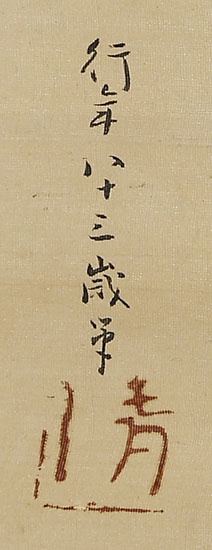 行年八十三歳筆